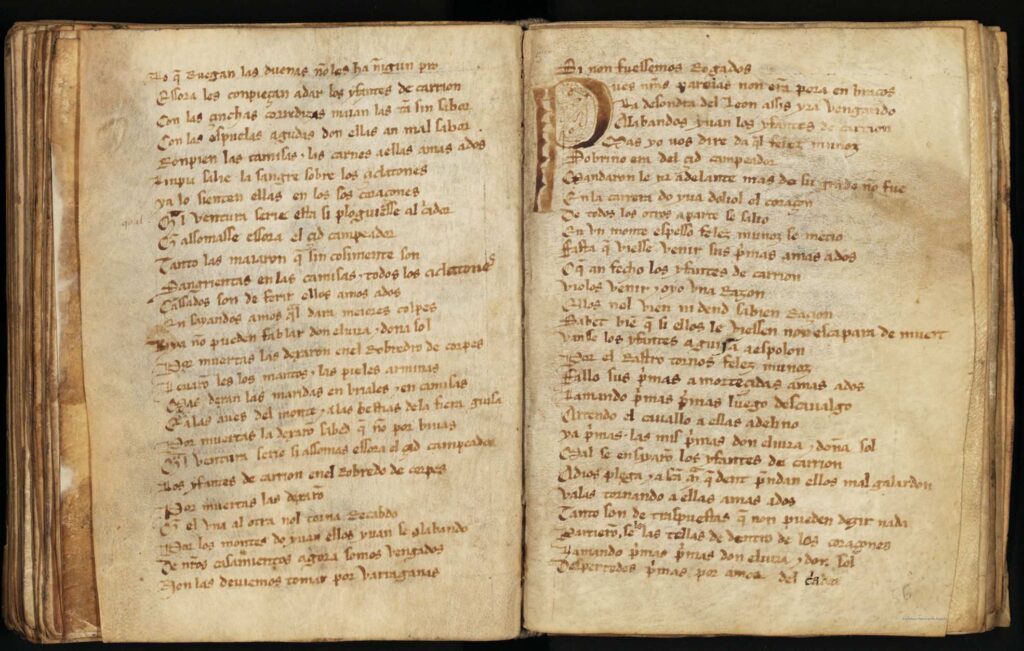 Lo q̃ Ruegan las duenas nõ les ha nĩgun pro
Essora les conpieçan a dar los yfantes de carrion
Con las çinchas corredizas maian las tã sin sabor
Con las espuelas agudas don ellas an mal sabor
Ronpien las camisas ⁊ las carnes a ellas amas ados
Linpia salie la sangre sobre los ciclatones
ya lo sienten ellas en los sos coraçones
Q̃l ventura serie esta si ploguiesse al c̃ador
Q̃ assomasse essora el çid campeador
Tanto las maiaron q̃ sin cosimente son
Sangrientas en las camisas ⁊ todos los ciclatones
Cansados son de ferir ellos amos ados
Ensayandos amos q̃l dara meiores colpes
Hya no pueden fablar don eluira ⁊ doña sol
Por muertas las dexaron enel Robredro de corpes
Leuarõ les los mantos ⁊ las pieles arminas
Mas dexan las maridas en briales ⁊ en camisas
E alas aues del monte ⁊ a las bestias dela fiera guisa
Por muertas la dexarõ sabed q̃ nõ por biuas
Q̃l ventura serie si assomas essora el çid campeador
Los yfantes de carrion enel Robredo de corpes
Por muertas las dexarõ
Q̃ el vna al otra nol torna Recabdo
Por los montes do yuan ellos yuan se alabando
De nr̃os casamientos agora somos vengados
Non las deuiemos tomar por varraganas
Si non fuessemos Rogados
Pues nr̃as pareias non erã pora en braços
La desondra del leon assis yra vengando
Alabandos yuan los yfantes de carrion
Mas yo uos dire da q̃l felez muñoz
Sobrino era del çid campeador
Mandaron le yr adelante mas de su grado nõ fue
En la carrera do yua doliol el coraçon
De todos los otros aparte se salio
En vn monte espesso felez muñoz se metio
Fasta q̃ viesse venir sus p̃mas amas ados
O q̃ an fecho los yfantes de carrion
Violos venir ⁊ oyo vna Razon
Ellos nol vien ni dend sabien Raçion
Sabet biẽ q̃ si ellos le viessen non escapara de muert
Vansse los yfantes aguijan a espolon
Por el Rastro tornos felez muñoz
Fallo sus p̃mas amorteçidas amas ados
Lamando p̃mas p̃mas luego descaualgo
Arrendo el cauallo a ellas adelino
ya p̃mas las mis p̃mas don eluira ⁊ doña sol
Mal se ensayarõ los yfantes de carrion
A dios plega q̃ dent p̃ndan ellos mal galardon
Valas tornando a ellas amas ados
Tanto son de traspuestas q̃ non pueden dezir nada
Partierõ se le las tellas de dentro de los coraçones
Lamando p̃mas p̃mas don eluira ⁊ don sol
Despertedes p̃mas por amor del c̃ador
56